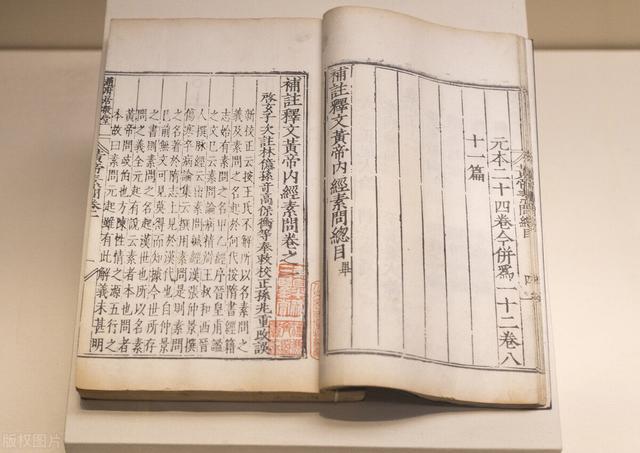 元本二十四卷今併爲一十二卷八
十一篇
補註釋文黃帝內經素問總目 畢
四
補註釋文黃帝內經素問卷之
啓玄子次註林億孫奇高保衡等奉敕校正孫兆重改誤
新校正云按王氏不解所以名素問之
義及素問之名起於何代按隋書經籍
志始有素問之名甲乙經序晉皇甫謐
之文已云素問論病精辨王叔和西晉
人撰脉經云出素問鍼經漢張仲景撰
傷寒卒病論集云撰用素問是則素問
之名著於隋志上見於漢代也自仲景
已前無文可見莫得而知據今世所存
之書則素問之名起漢世也所以名素
問之義全元起有說云素者本也問者
黃帝問岐伯也方陳性情之源五行之
本故曰素問元起雖有此解義未甚明
版权图片